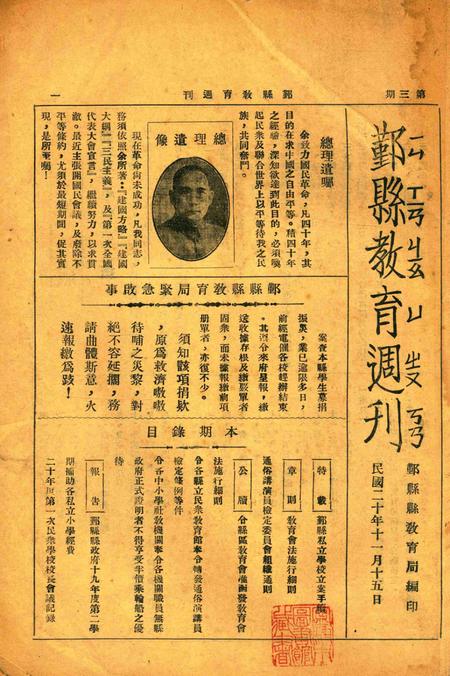 第三期
鄞縣教育週刊
一
鄞縣教育週刊
ㄧㄣ ㄒㄧㄢ ㄐㄧㄠ ㄩ ㄓㄡ ㄎㄢ
鄞縣縣教育局編印
民國二十年十一月十五日
總理遺囑
余致力國民革命，凡四十年，其
目的在求中國之自由平等。積四十年
之經驗，深知欲達到此目的，必須喚
起民衆及聯合世界上以平等待我之民
族，共同奮鬥。
總理遺像
現在革命尚未成功，凡我同志，
務須依照余所著：『建國方略』『建國
大綱』『三民主義』，及『第一次全國
代表大會宣言』，繼續努力，以求貫
澈。最近主張開國民會議，及廢除不
平等條約，尤須於最短期間，促其實
現，是所至囑！
鄞縣縣教育局緊急啟事
案查本縣學生募捐
振災，業已逾限多日，
前經電催各校趕辦結束
送收據存根及繳款單者
固衆，而未據報繳前項
册單者，亦復不少。
須知該項捐欵
，原爲救濟嗷嗷
待哺之災黎，對
絕不容延擱，務
請曲體斯意，火
速報繳爲跂！
本期錄目
特載
鄞縣私立學校立案手續
章則
教育會法施行細則
通俗講演員檢定委員會組織通則
公牘
令縣區教育會
法施行細則
令各縣立民衆教育館奉令轉發通俗演講員
檢定條例等件
令各中小學社教機關奉令各機關職員無縣
政府正式證明者不得享受半價乘輪船之優
待
報告
鄞縣縣政府十九年度第二學
期補助各私立小學經費
二十年度第一次民衆學校校長會議記錄